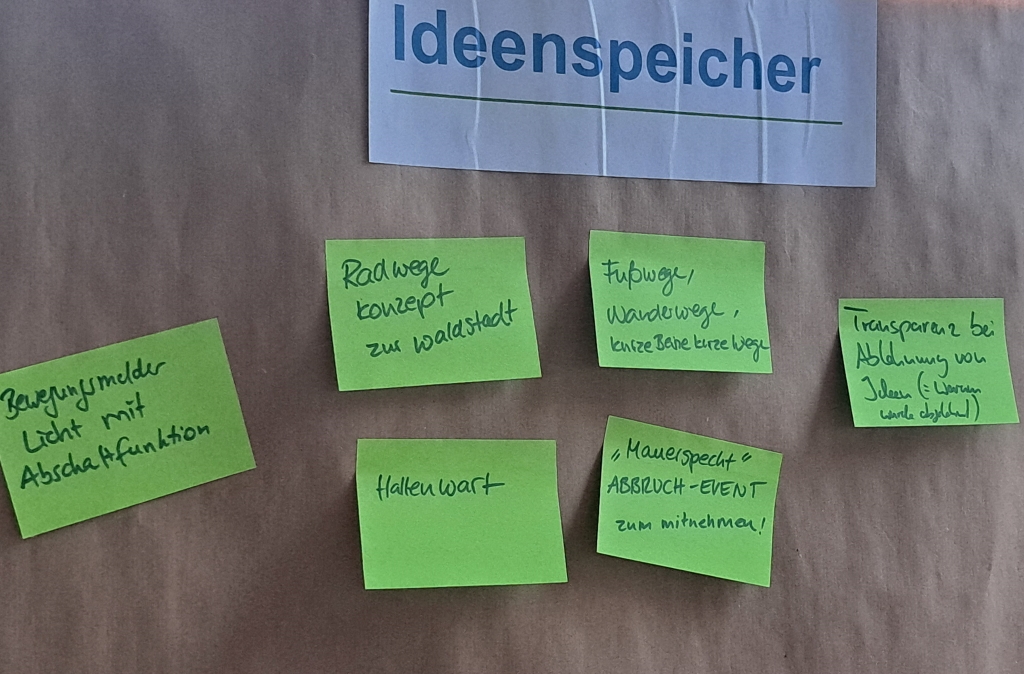 Ideenspeicher
Bewegungsmelder
Licht mit
Abschaltfunktion
Radwege
konzept
zur Waldstadt
Fußwege,
Wanderwege,
kurze Beine kurze Wege
Hallenwart
„Mauerspecht“
ABBRUCH-EVENT
zum mitnehmen!
Transparenz bei
Ablehnung von
Ideen (= Warum
wurde abgelehnt)